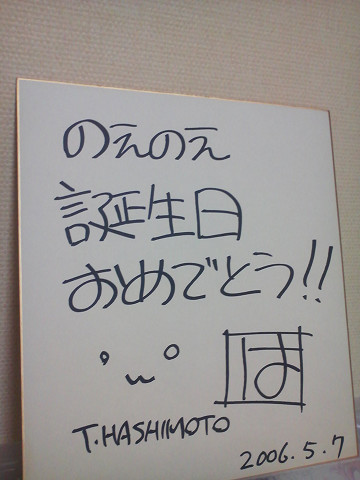 のえのえ
誕生日
おめでとう!!
ほ
T.HASHIMOTO
2006.5.7